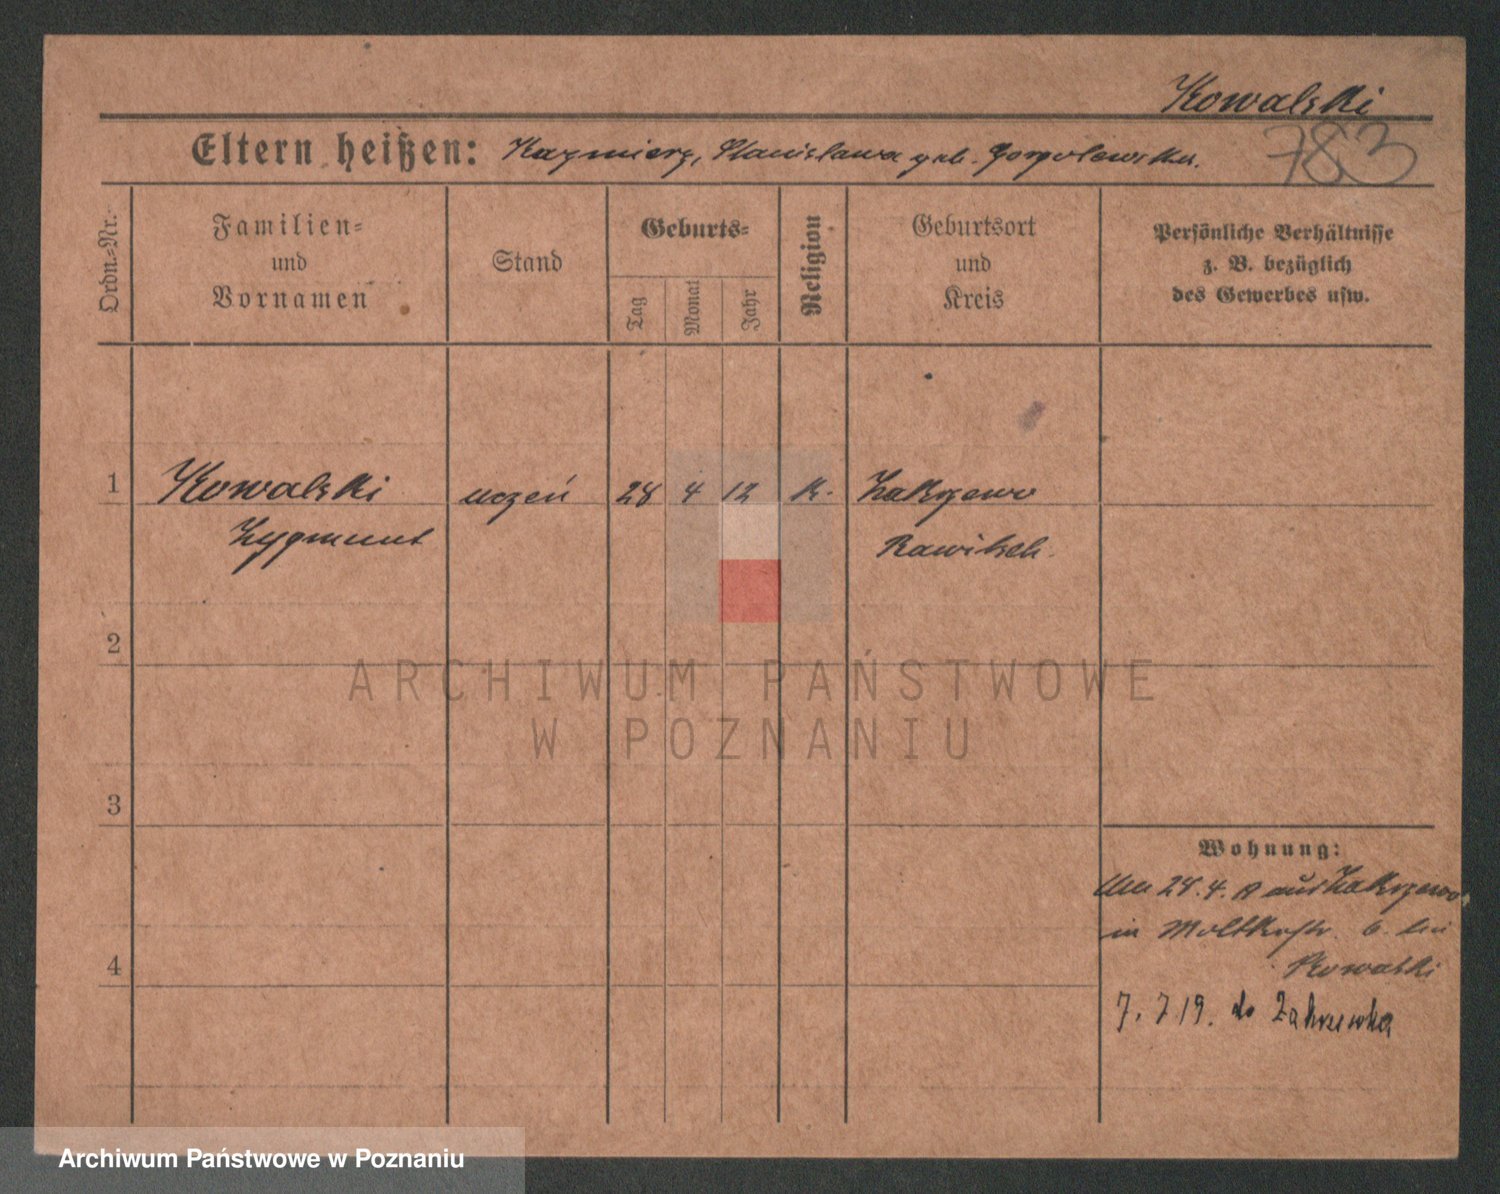 Kowalski
783
Eltern heißen: Kazmierz, Stanisława geb. Gorgolewska.
Ordn.-Nr.
Familien-
und
Vornamen
Stand
Geburts-
Tag
Monat
Jahr
Religion
Geburtsort
und
Kreis
Persönliche Verhältnisse
z. B. bezüglich
des Gewerbes usw.
1 Kowalski uczeń 28 4 12 K. Zakrzewo
Zygmunt Rawitsch.
2
ARCHIWUM PAŃSTWOWE
W POZNANIU
3
Wohnung:
24.4.19 aus Zakrzewo
in Moltkestr. 6. bei
4 Kowalski
7. 7 19. do Zakrzewka
Archiwum Państwowe w Poznaniu